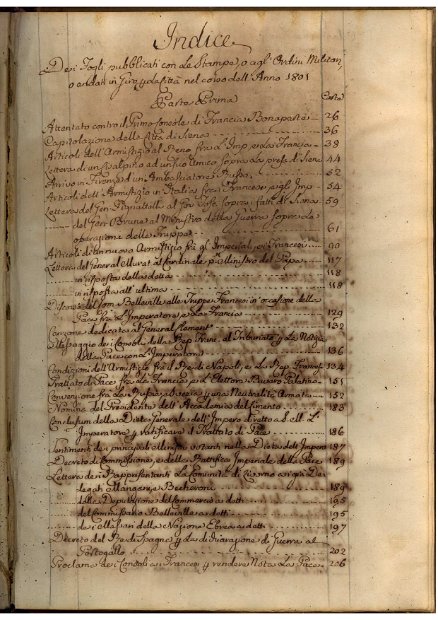 Indice
Dei Fogli pubblicati con le Stampe, o agl' Ordini Militari,
o addati in Firenze nel corso dell' Anno 1801
Parte Prima Carte
Attentato contro il Primo Console di Francia Bonaparte 26
Capitolazione della Città di Siena 36
Articoli dell' Armistizio al Reno fra l' Imp. e la Francia 38
Lettera di un Scalpino ad un suo Amico sopra la presa di Siena 44
Arrivo in Firenze d' un Ambasciatore 52
Articoli dell' Armistizio in Italia fra i Francesi e gl' Imp. 54
Lettera del Gen. Pignattelli al sopra i fatti di Siena 59
del Gen. Brune al Ministro della Guerra sopra le
operazioni delle Truppe 61
Articoli di un nuovo Armistizio fra gl' Imperiali, e i Francesi 90
Lettera del General Murat al Cardinale Ministro del Papa 117
in risposta della detta 118
in risposta all' ultima 118
del Com. Belleville alle Truppe Francesi in occasione della
Pace fra l' Imperatore e la Francia 129
Canzone dedicata al General 132
Messaggio dei Consoli della Rep. Franc. al Tribunato
della Pace con l' Imperatore 136
Condizioni dell' Armistizio fra il Re di Napoli, e la Rep. Francese 134
Trattato di Pace fra la Francia, e l' Elettore Bavaro Palatino 151
Convenzione fra la Russia, e Svezia una Neutralità Armata 152
Nomina del Presidente dell' Accademia del Cimento 183
della Dieta Generale dell' Impero diretto a S. M. L'
Imperatore il Trattato di Pace 186
Sentimenti dei principali votanti nella Dieta dell' Impero 187
Decreto di Commissione, e della Ratifica Imperiale della Pace 189
Lettera dei Rappresentanti la Comunità di Livorno
189
della Deputazione del Commercio a detti 195
del Commissario Belleville a detti 195
dei Massari della Nazione Ebrea a detti 197
Decreto del Re di Spagna, la dichiarazione di Guerra al
Portogallo 202
Proclama dei Consoli Francesi rendere nota la Pace 206